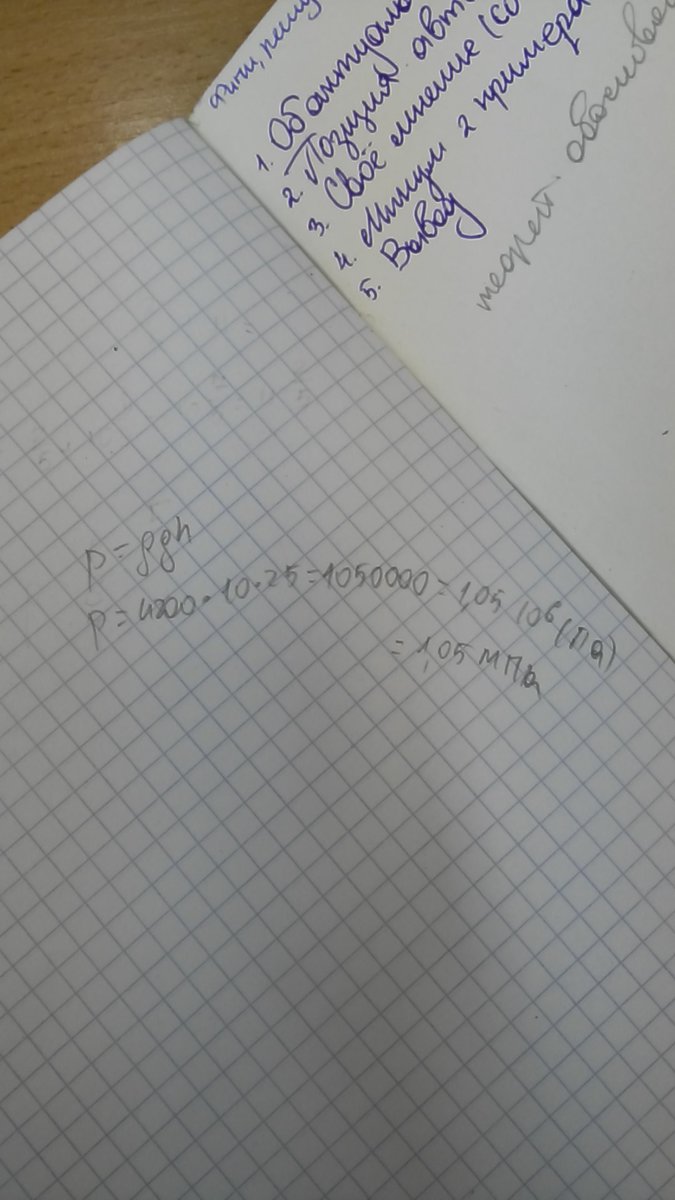 1. Обактуаль
2. Позиция авт
3. Своё мнение (со
4. Миним 2 примера
5. Вывод
теорет. обоснова
p = ρgh
p = 4200 · 10 · 25 = 1050000 = 1,05 10⁶ (Па)
= 1,05 мПа